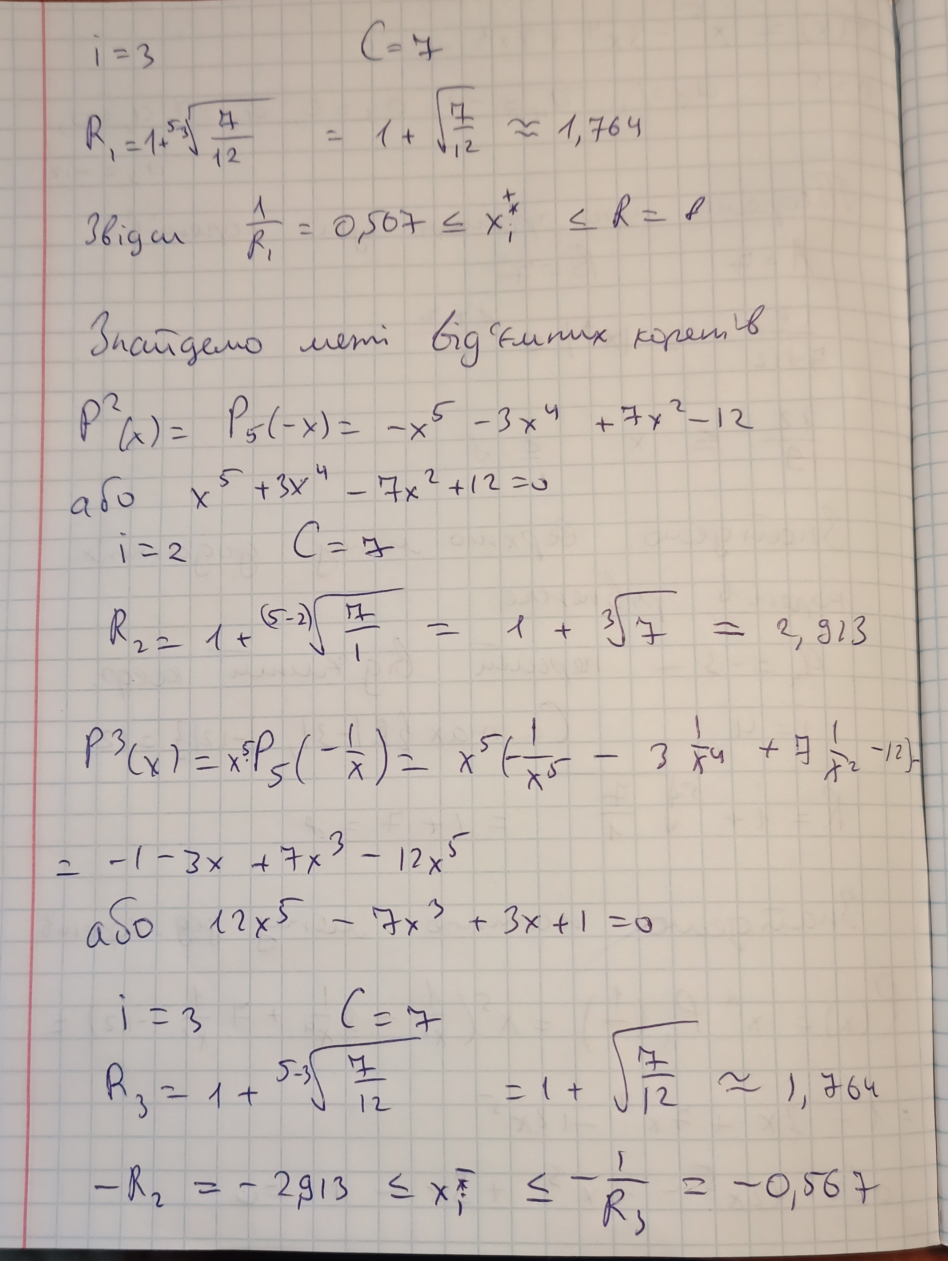 i = 3 C = 7
R₁ = 1 + ⁵⁻³√(7/12) = 1 + √(7/12) ≈ 1,764
Звідси 1/R₁ = 0,567 ≤ xᵢ*⁺ ≤ R = 8
Знайдемо межі від'ємних коренів
P²(x) = P₅(-x) = -x⁵ - 3x⁴ + 7x² - 12
або x⁵ + 3x⁴ - 7x² + 12 = 0
i = 2 C = 7
R₂ = 1 + ⁽⁵⁻²⁾√(7/1) = 1 + ³√7 = 2,913
P³(x) = x⁵·P₅(-1/x) = x⁵(-1/x⁵ - 3 1/x⁴ + 7 1/x² - 12) =
= -1 - 3x + 7x³ - 12x⁵
або 12x⁵ - 7x³ + 3x + 1 = 0
i = 3 C = 7
R₃ = 1 + ⁵⁻³√(7/12) = 1 + √(7/12) ≈ 1,764
-R₂ = -2,913 ≤ xᵢ*⁻ ≤ -1/R₃ = -0,567